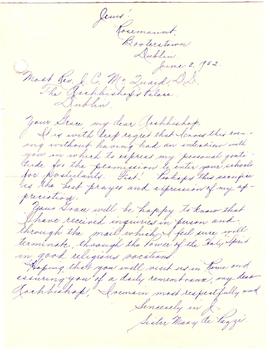 Jesus!
Rosemount,
Booterstown
Dublin
June 2, 1952
Most Rev. J. C. McQuaid, D.D.
The Archbishop's Palace
Dublin.
Your Grace my dear Archbishop:
It is with deep regret that I leave this evening
without having had an interview with
you in which to express my personal gratitude
for the permission to enter your schools
for postulants. Fiat! Perhaps this sacrifice
is the best prayer and expression of my appreciation.
Your Grace will be happy to know that
I have received inquiries in person and
through the mail which I feel sure will
terminate, through the power of the Holy Spirit
in good religious vocations.
Hoping that you will visit us in Rome and
assuring you of a daily remembrance, my dear
Archbishop, I remain most respectfully and
Sincerely in J.
Sister Mary de Pazzi